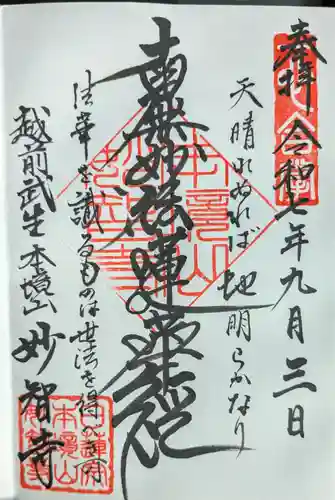 奉拝 令和七年九月三日
天晴れぬれば地明らかなり
南無妙法蓮華経
法華を識るものは世法を得べきか
越前武生 本境山 妙智寺